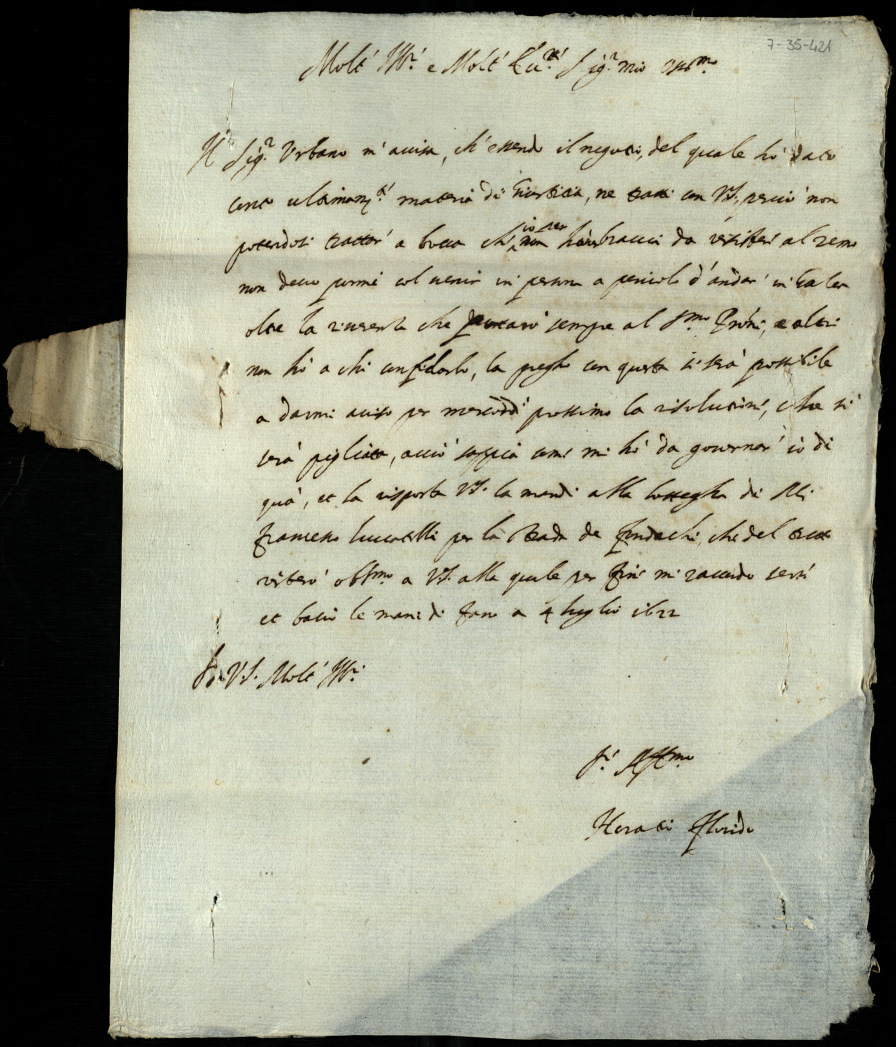 7-35-421
Molt' Ill.re e Molt' Ecc.te Sig.r mio oss.mo
Il Sig.r Urbano m'avisa, ch'essendo il negotio, del quale hò dato
conto ultimam.te materia di Giustitia, ne tratti con VS. perciò non
potendosi trattar' a bocca ch' io per non haver bracci da resister' al remo
non devo pormi col venir in persona a pericolo d'andar' in Galea
oltre la riverenza che portarò sempre al S.mo e altri
non hò a chi confidarlo, la prego con questa se serà possibile
a darmi aviso per mercoddì prossimo la risolutione, che si
serà pigliata, acciò sappia come mi hò da governar' io di
quà, et la risposta VS. la mandi alla bottegha di
Francesco Luccatelli per la strada de fondachi, che del tutto
resterò obl.mo a VS. alla quale per fine mi raccordo ser.re
et bacio le mani di Fano a 4 luglio 1622
Di VS. Molt' Ill.re
S.r Aff.mo
Horatio Florido